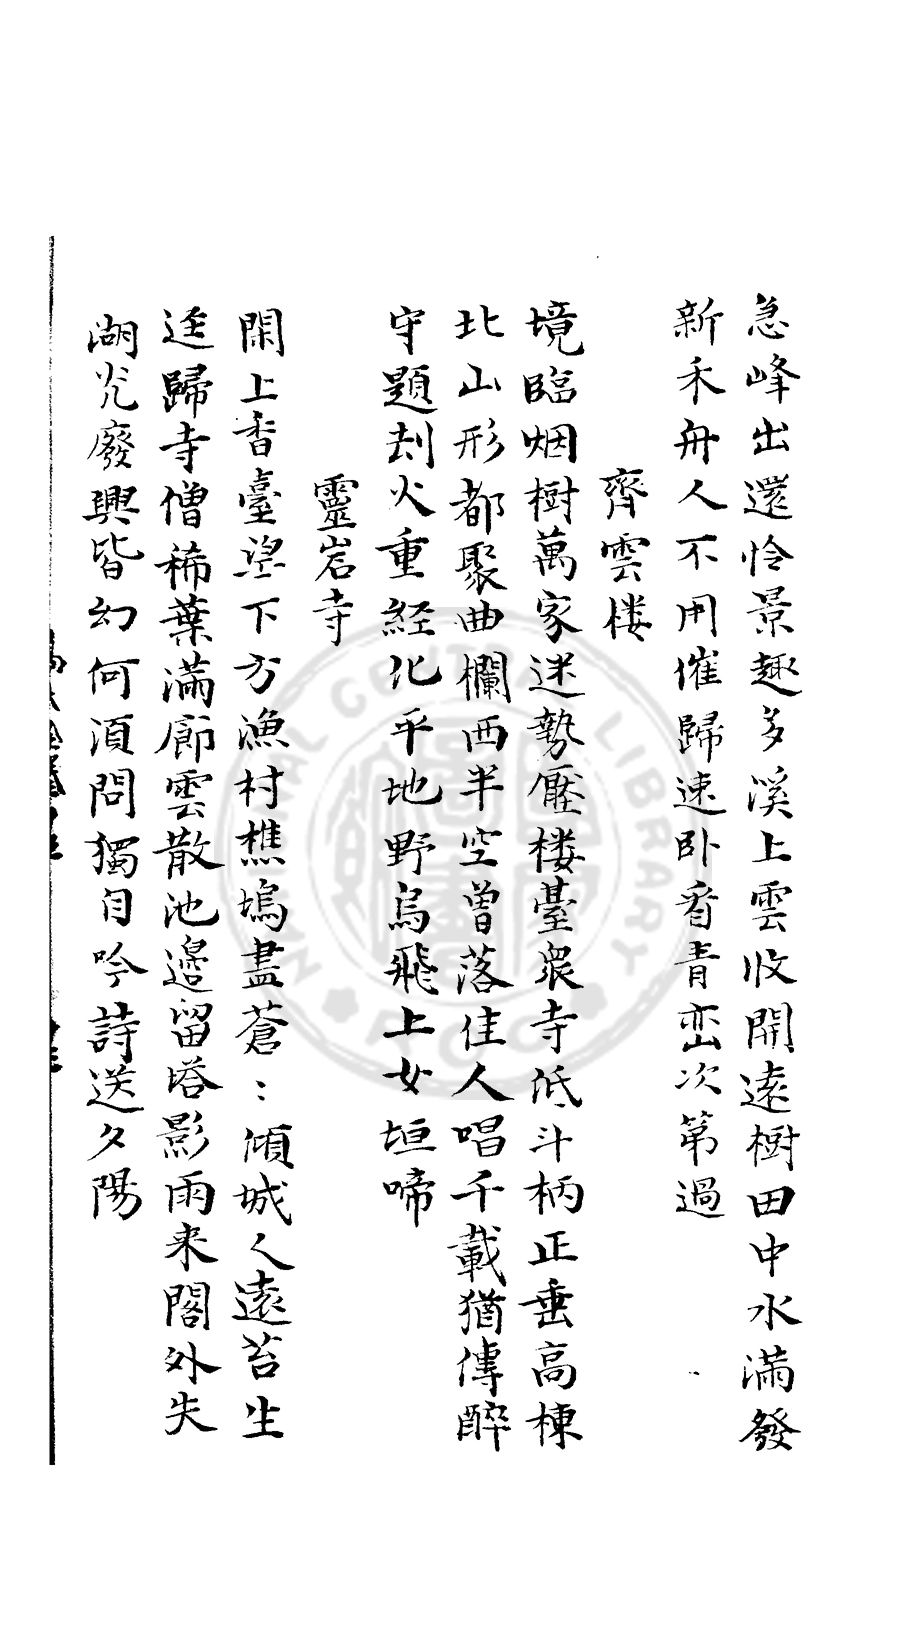 急峰出還怜景趣多溪上雲收開遠樹田中水滿發
新禾舟人不用催歸速卧看青峦次第過
齊雲楼
境臨烟樹萬家迷勢壓楼臺眾寺低斗柄正垂高棟
北山形都聚曲欄西半空曾落佳人唱千載猶傳醉
守題刦火重経化平地野烏飛上女垣啼
靈岩寺
閑上香臺望下方漁村樵塢盡蒼〻傾城人遠苔生
逕歸寺僧稀葉滿廊雲散池邊留塔影雨来閣外失
湖光廢興皆幻何湏問獨自吟詩送夕陽
NATIONAL CENTRAL LIBRARY